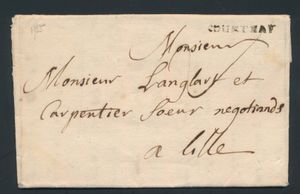 1785
COURTRAY
Monsieur
Monsieur Langlart et
Carpentier Soeur negotiands
a Lille